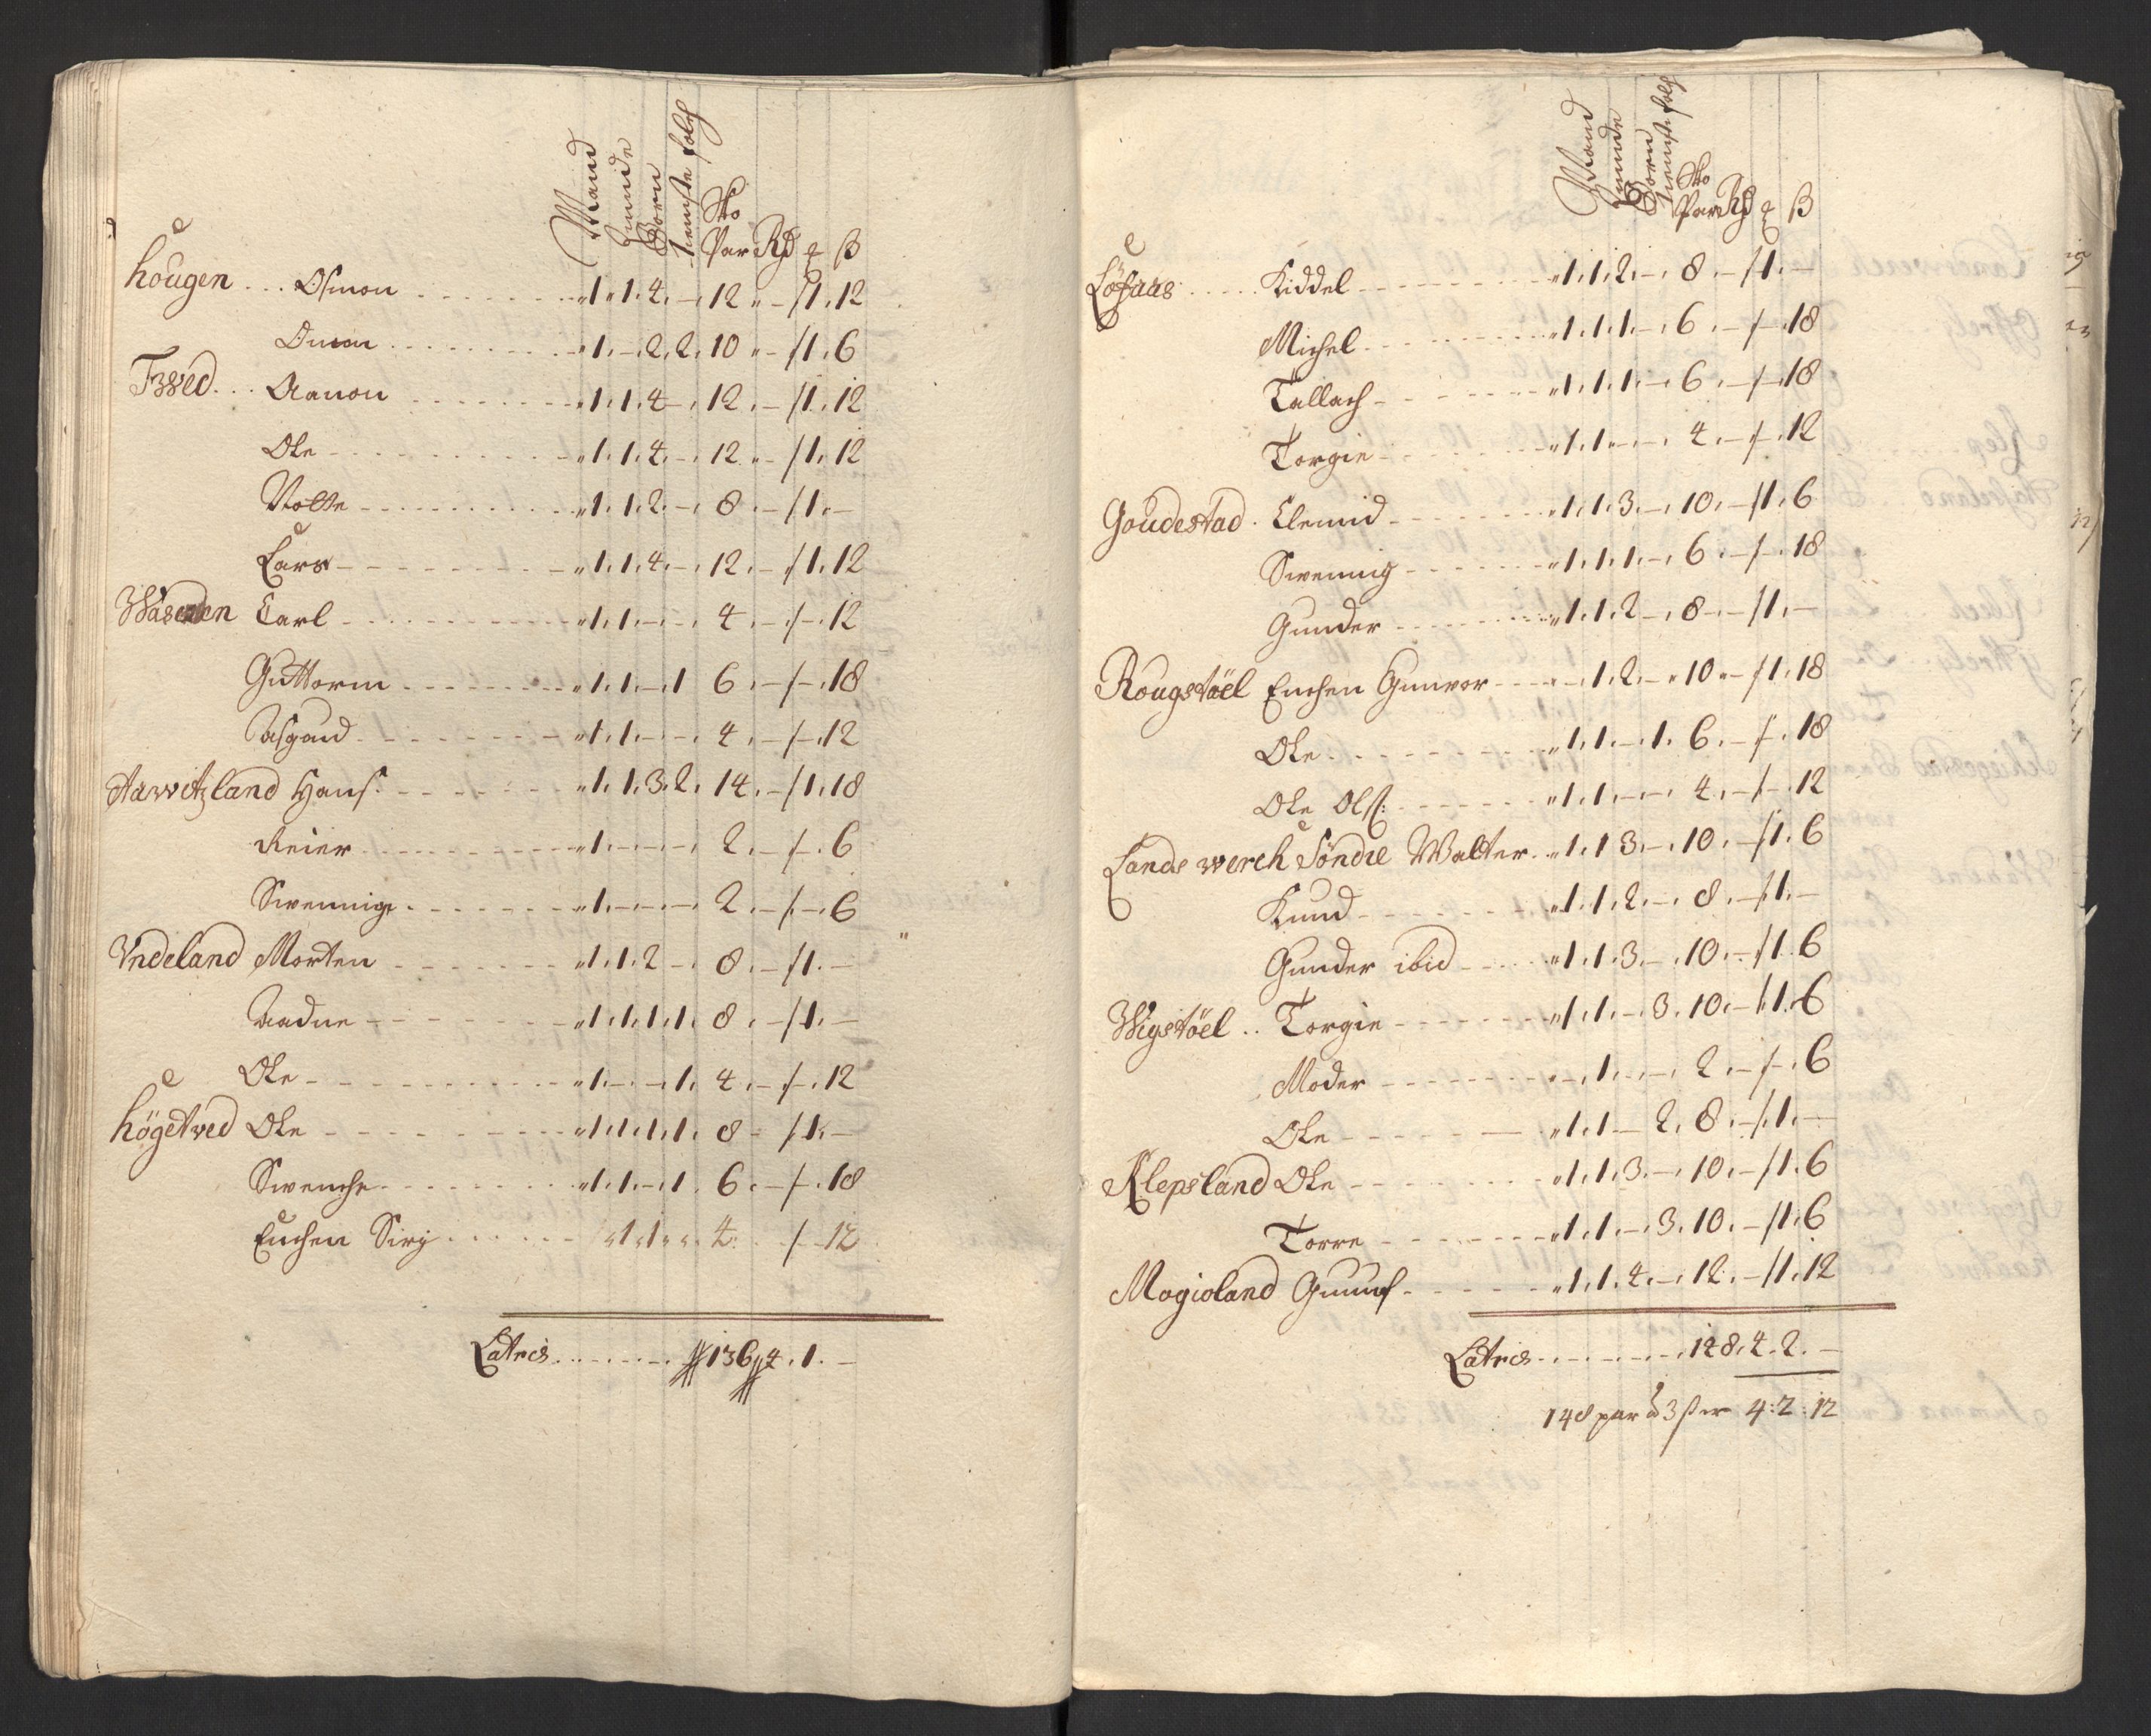 Mand
Quinde
Børn
tienste folch
Sko
Par Rd ɛ ß
hougen . . . Osmon . . . . . . „ 1 „ 1. 4. – . 12 „ – /1. 12
Omon . . . . . . „ 1. – . 2. 2. 10 „ – /1. 6
Tvved . . . Aanon . . . . . . „ 1. 1. 4 – . 12. – /1. 12
Ole - - - - - - „ 1. 1. 4. – . 12 „ – /1. 12
Nolle - - - - - - „ 1. 1. 2. – . 8 . – /1. –
Lars - - - - - - „ 1. 1. 4. – . 12. – /1. 12
Waserden Carl - - - - - - „ 1. 1. – . – . 4 . – /– . 12
Guttorm . . . . . . „ 1. 1. – . 1 6 . – /– . 18
Asgaud . - - - - - „ 1. 1. – . – . 4 . – /– . 12
Aavvitzland Hans . - - - - - „ 1. 1. 3. 2. 14. – /1. 18
Reier . - - - - - „ 1. – . – . – . 2 . – /– . 6
Swennige . - - - - - „ 1. – . – . – . 2 . – /– . 6
Vndeland Morten - - - - - - „ 1. 1. 2 – . 8 . – /1. –
Aadne - - - - - - „ 1. 1. 1. 1. 8 . – /1. –
Ole - - - - - - „ 1. – . – . 1. 4 . – /– . 12
högetved Ole - - - - - - „ 1. 1. 1. 1. 8 – /1. –
Swenche . - - - - - „ 1. 1. – . 1 . 6 . – /– . 18
Enchen Sirj . . . . . . 1. 1. 4. /– 12
Latris . . . . . . 136 4. 1. –
Mand
Quinde
Børn
tienste folch
Sko
Par Rd ɛ ß
Löfaas . . . . . Kiddel - - - - - - „ 1. 1. 2. – . 8 . – /1. –
Michel . - - - - - „ 1. 1. 1. – . 6 . – /– . 18
Tallach - - - - - - „ 1. 1. 1. – . 6 . – /– . 18
Torgie - - - - - - „ 1. 1. – . – . 4 . – /– . 12
Goudestad . Clemid - - - - - - „ 1. 1. 3. – . 10. – /1. 6
Swennig - - - - - - „ 1. 1. 1. – . 6 . – /– . 18
Gunder - - - - - - „ 1. 1. 2 – . 8 – /1. –
Rougstöel Enchen Gunvor - - - - – . 1. 2. – . 10 – /1. 18
Ole . - - - - - „ 1. 1. – . 1. 6 . – /– . 18
Ole Olß: - - - - - - „ 1. 1. – . – . 4 . – /– . 12
Lands werch Söndre Walter . „ 1. 1 3. – . 10. – /1. 6
Knud - - - - - - „ 1. 1. 2. – . 8 . – /1. –
Gunder ibid - - - - „ 1. 1. 3. – . 10. – /1. 6
Wigstöel . . Torgie - - - - - - „ 1. 1. – . 3. 10. – /1. 6
Moder - - - - - - „ – . 1. – . – . 2 . – /– . 6
Ole - - - - - - „ 1. 1 – 2. 8 . – /1. –
Klepsland Ole - - - - - - „ 1. 1. 3. – . 10. – /1. 6
Torre - - - - - - „ 1. 1. – . 3. 10. – /1. 6
Mogioland Gunuf . - - - - - „ 1. 1. 4. – . 12. – /1. 12
Latris . - - - - - 148. 4. 2. –
148 par á 3 ß er 4 : 2 : 12